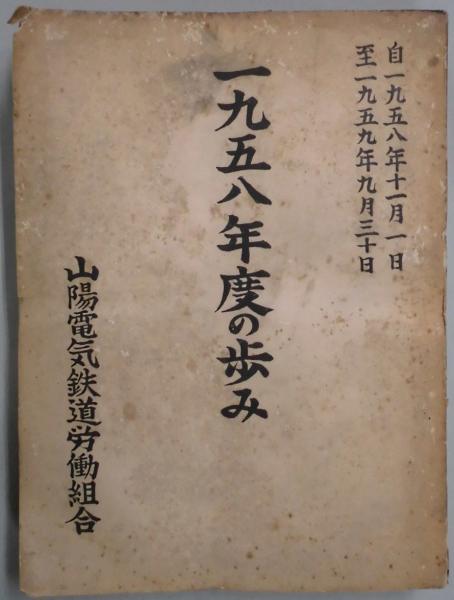 自一九五八年十一月一日
至一九五九年九月三十日
一九五八年度の歩み
山陽電気鉄道労働組合